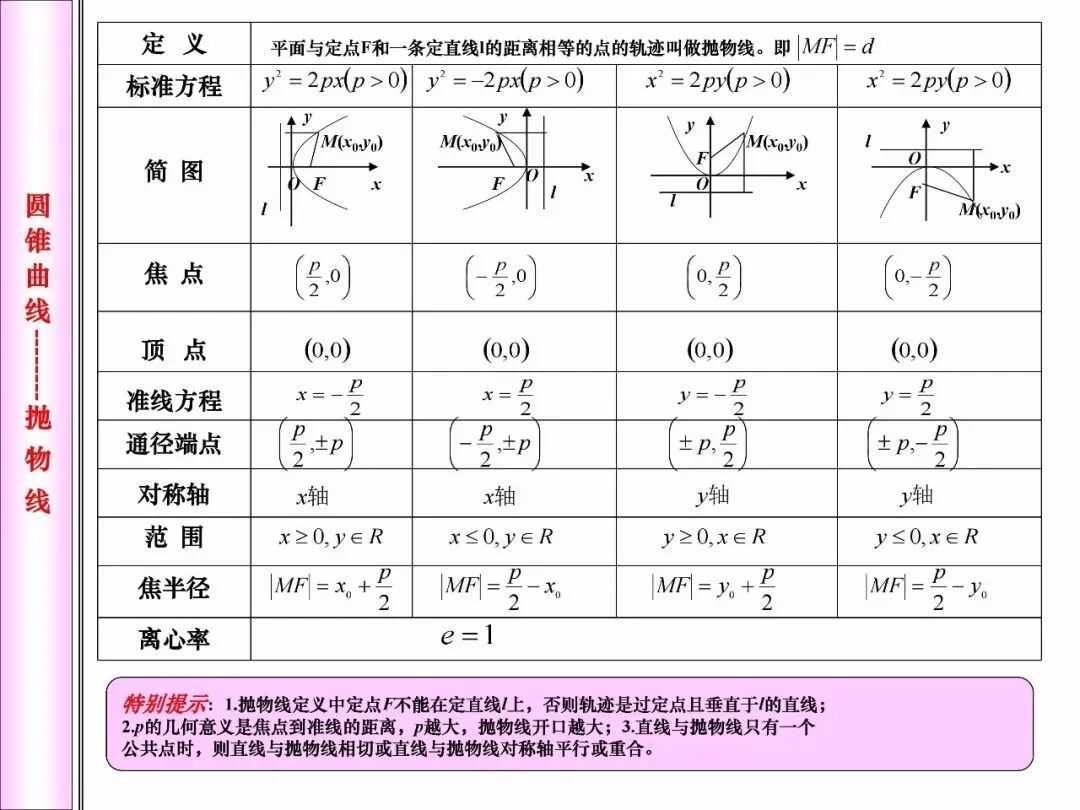 圆锥曲线--------抛物线
定 义 平面与定点F和一条定直线l的距离相等的点的轨迹叫做抛物线。即 |MF|=d
标准方程 y²=2px(p>0) y²=-2px(p>0) x²=2py(p>0) x²=2py(p>0)
简 图
y M(x₀,y₀) O F x l
y M(x₀,y₀) F O x l
y M(x₀,y₀) F O x l
l y O x F M(x₀,y₀)
焦 点 (p/2,0) (-p/2,0) (0,p/2) (0,-p/2)
顶 点 (0,0) (0,0) (0,0) (0,0)
准线方程 x=-p/2 x=p/2 y=-p/2 y=p/2
通径端点 (p/2,±p) (-p/2,±p) (±p,p/2) (±p,-p/2)
对称轴 x轴 x轴 y轴 y轴
范 围 x≥0,y∈R x≤0,y∈R y≥0,x∈R y≤0,x∈R
焦半径 |MF|=x₀+p/2 |MF|=p/2-x₀ |MF|=y₀+p/2 |MF|=p/2-y₀
离心率 e=1
特别提示：1.抛物线定义中定点F不能在定直线l上，否则轨迹是过定点且垂直于l的直线；
2.p的几何意义是焦点到准线的距离，p越大，抛物线开口越大；3.直线与抛物线只有一个
公共点时，则直线与抛物线相切或直线与抛物线对称轴平行或重合。